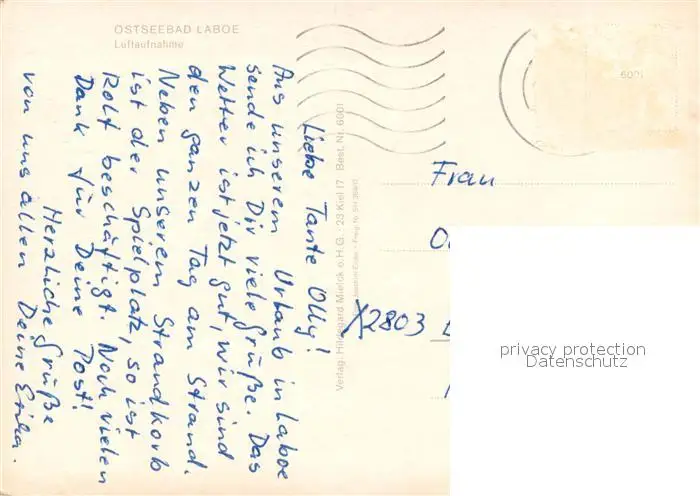 OSTSEEBAD LABOE
Luftaufnahme
Liebe Tante Olly!
Aus unserem Urlaub in Laboe
sende ich Dir viele Grüße. Das
Wetter ist jetzt gut, wir sind
den ganzen Tag am Strand.
Neben unserem Strandkorb
ist der Spielplatz, so ist
Rolf beschäftigt. Noch vielen
Dank für Deine Post!
Herzliche Grüße
von uns allen Deine Erika.
Verlag: Hildegard Mielck o.H.G. · 23 Kiel 17 Best. Nr. 6001
6001
Frau
2803
privacy protection
Datenschutz